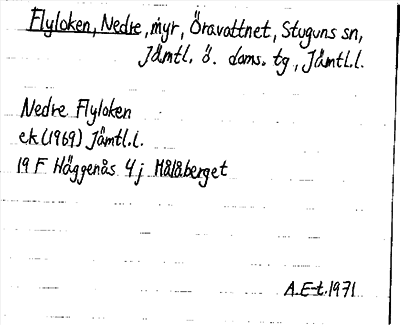 Flyloken, Nedre, myr, Öravattnet, Stuguns sn,
Jämtl. ö. doms. tg, Jämtl.l.
Nedre Flyloken
ek (1969) Jämtl.l.
19 F Häggenås 4j Målåberget
A.E-t. 1971